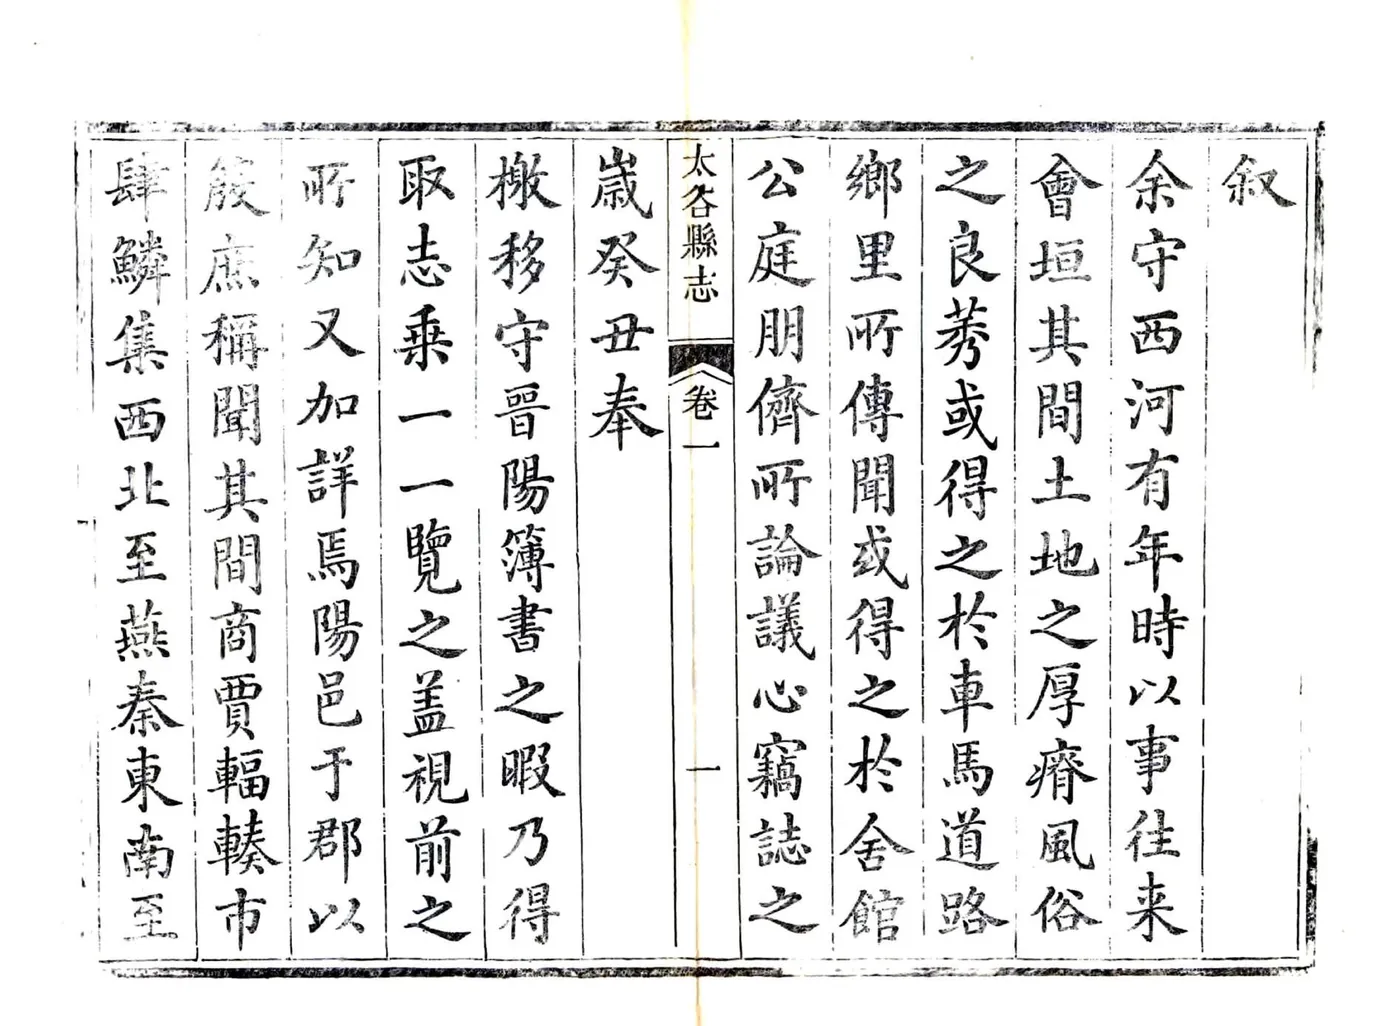 叙
余守西河有年時以事往来
會垣其間土地之厚瘠風俗
之良莠或得之於車馬道路
鄉里所傳聞或得之於舍館
公庭朋儕所論議心竊誌之
太谷縣志 卷一 一
歲癸丑奉
檄移守晉陽簿書之暇乃得
取志乗一一覽之盖視前之
所知又加詳焉陽邑于郡以
殷庶稱聞其間商賈輻輳市
肆鱗集西北至燕秦東南至